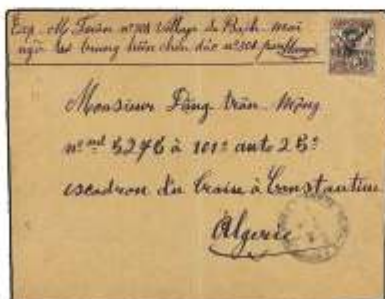 Exp. M. Toàn nº 301 Village de Bạch-mai
ngõ trung hiền chên dốc nº 301 par Hanoi
Monsieur Dăng trăn Mộng
nº mle 5276 à 101e auto 25e
escadron du train à Constantine
Algerie